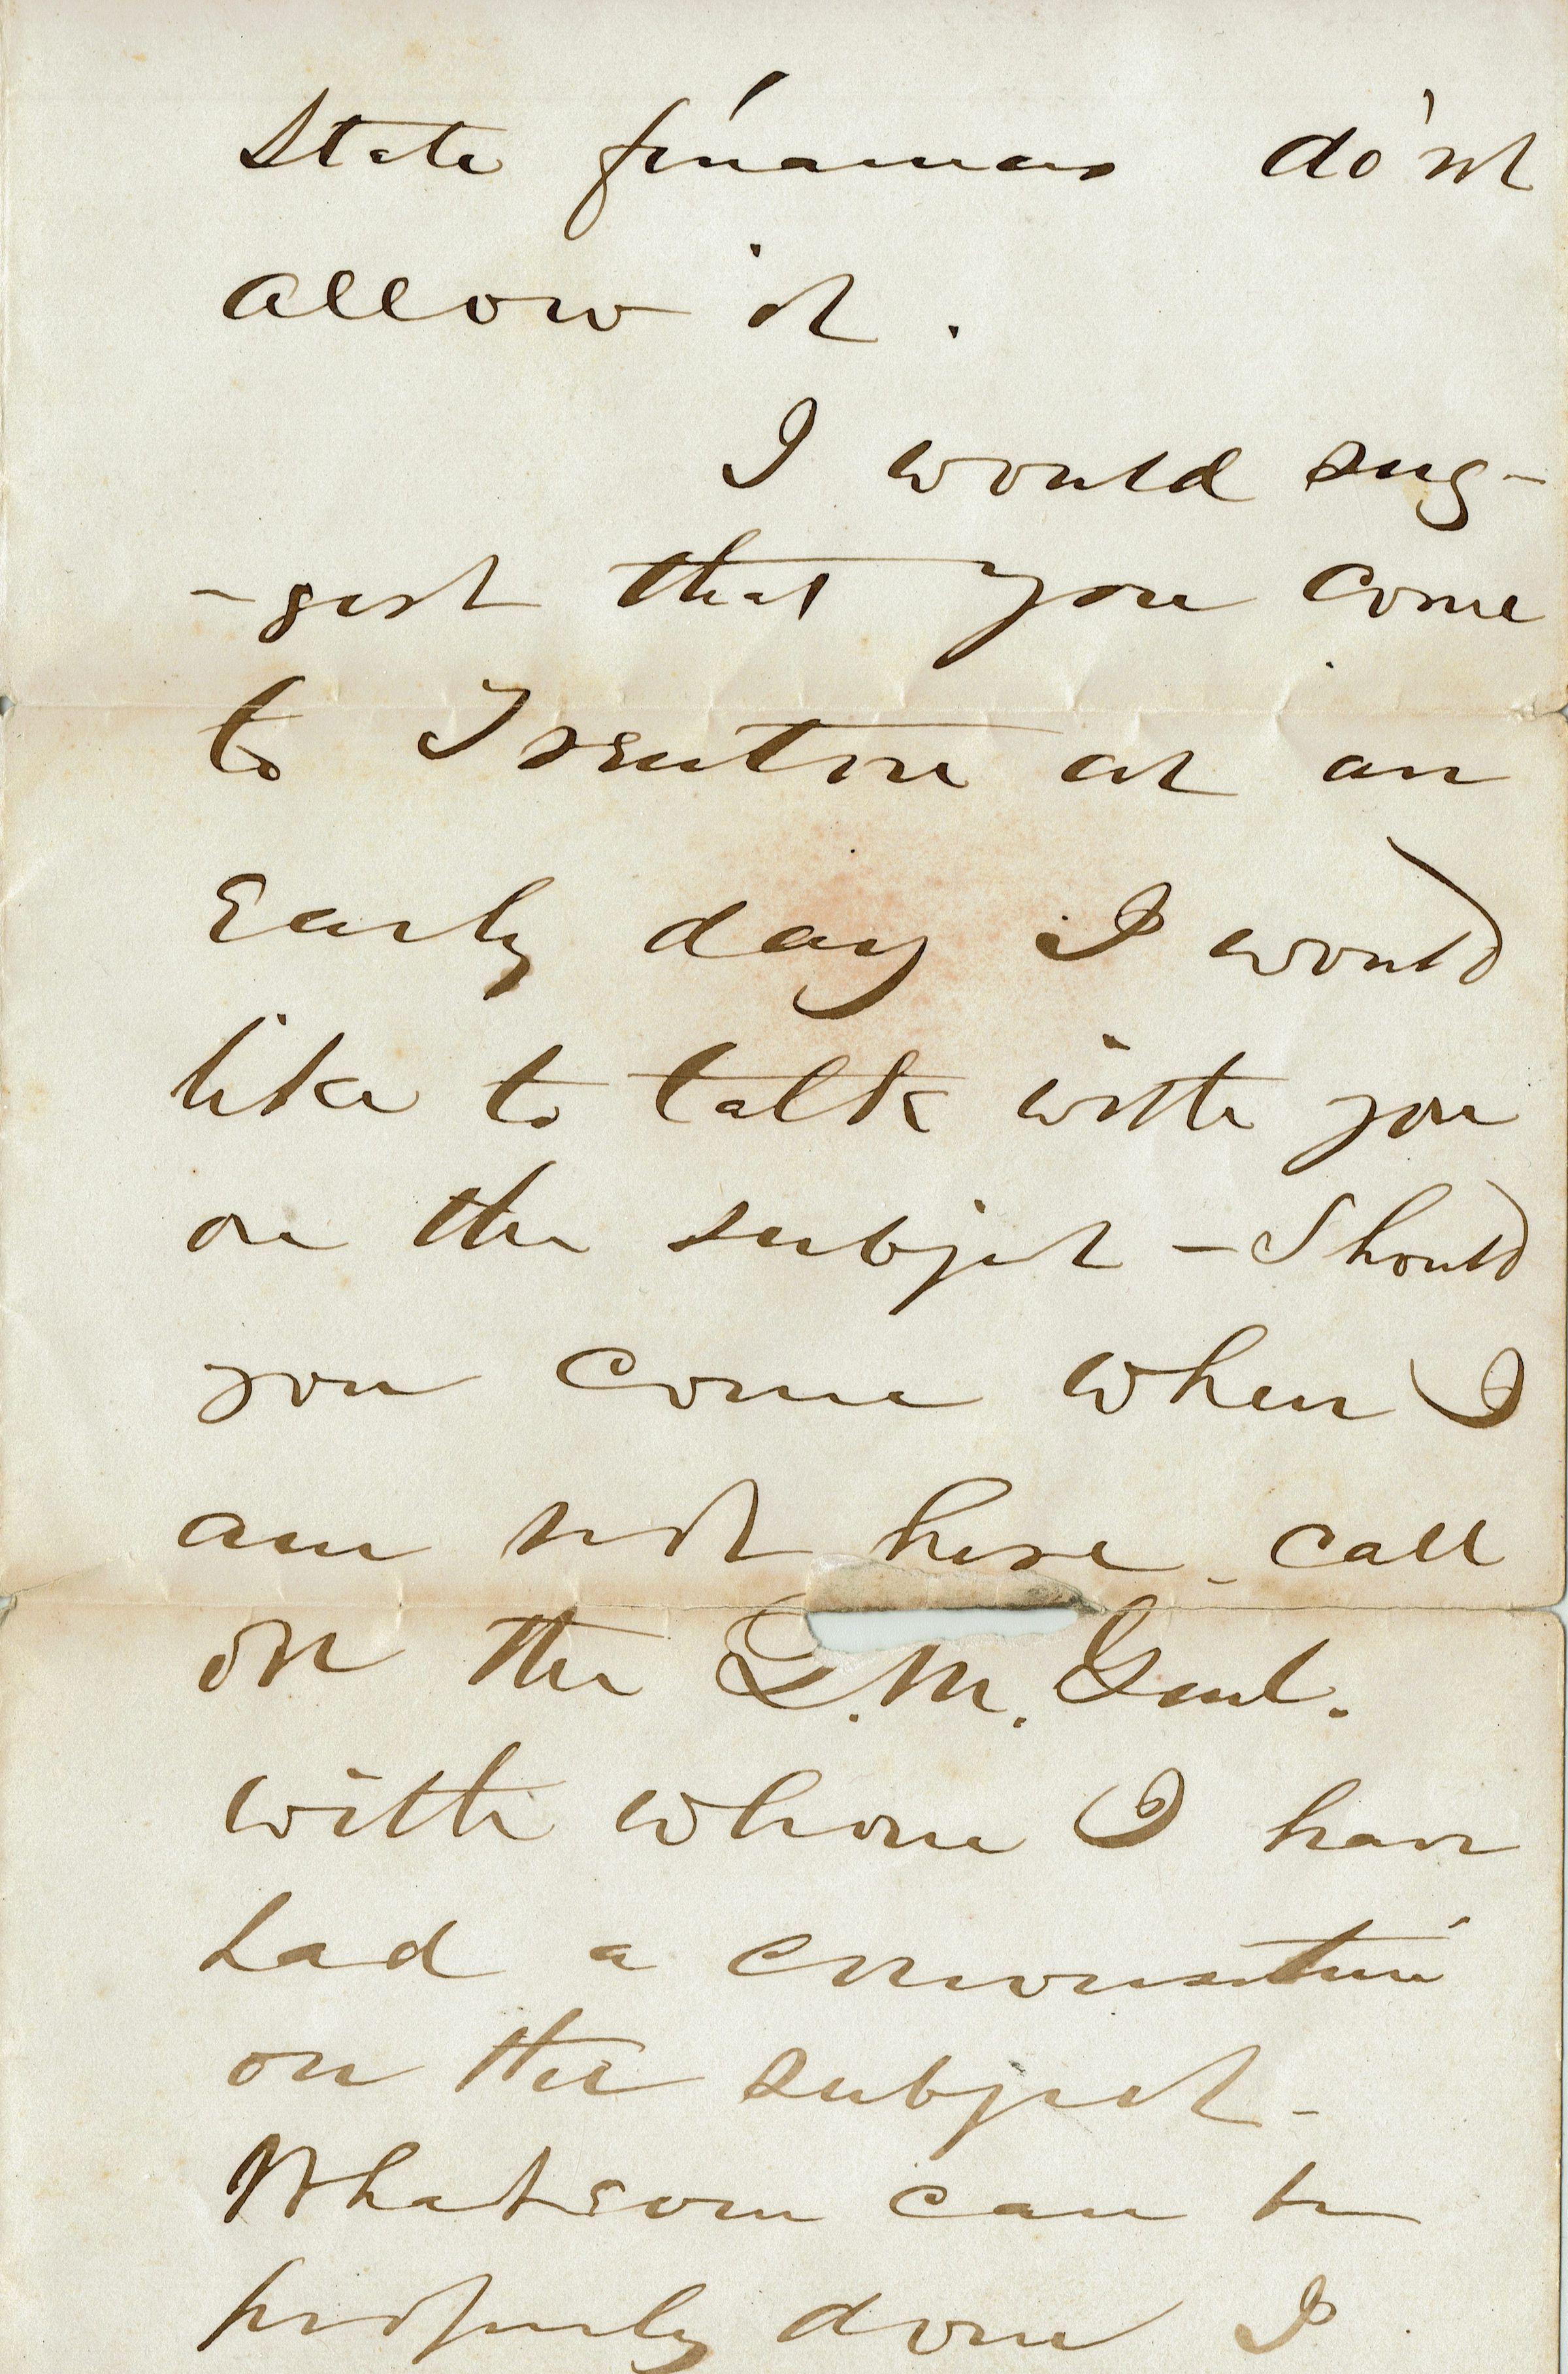 State finances do'nt
allow it.
I would sug-
-gest that you come
to Trenton at an
Early day I would
like to talk with you
on the subject - Should
you come when I
am not here - call
on the Q.M. Genl.
with whom I have
had a conversation
on the subject -
Whatever can be
properly done I